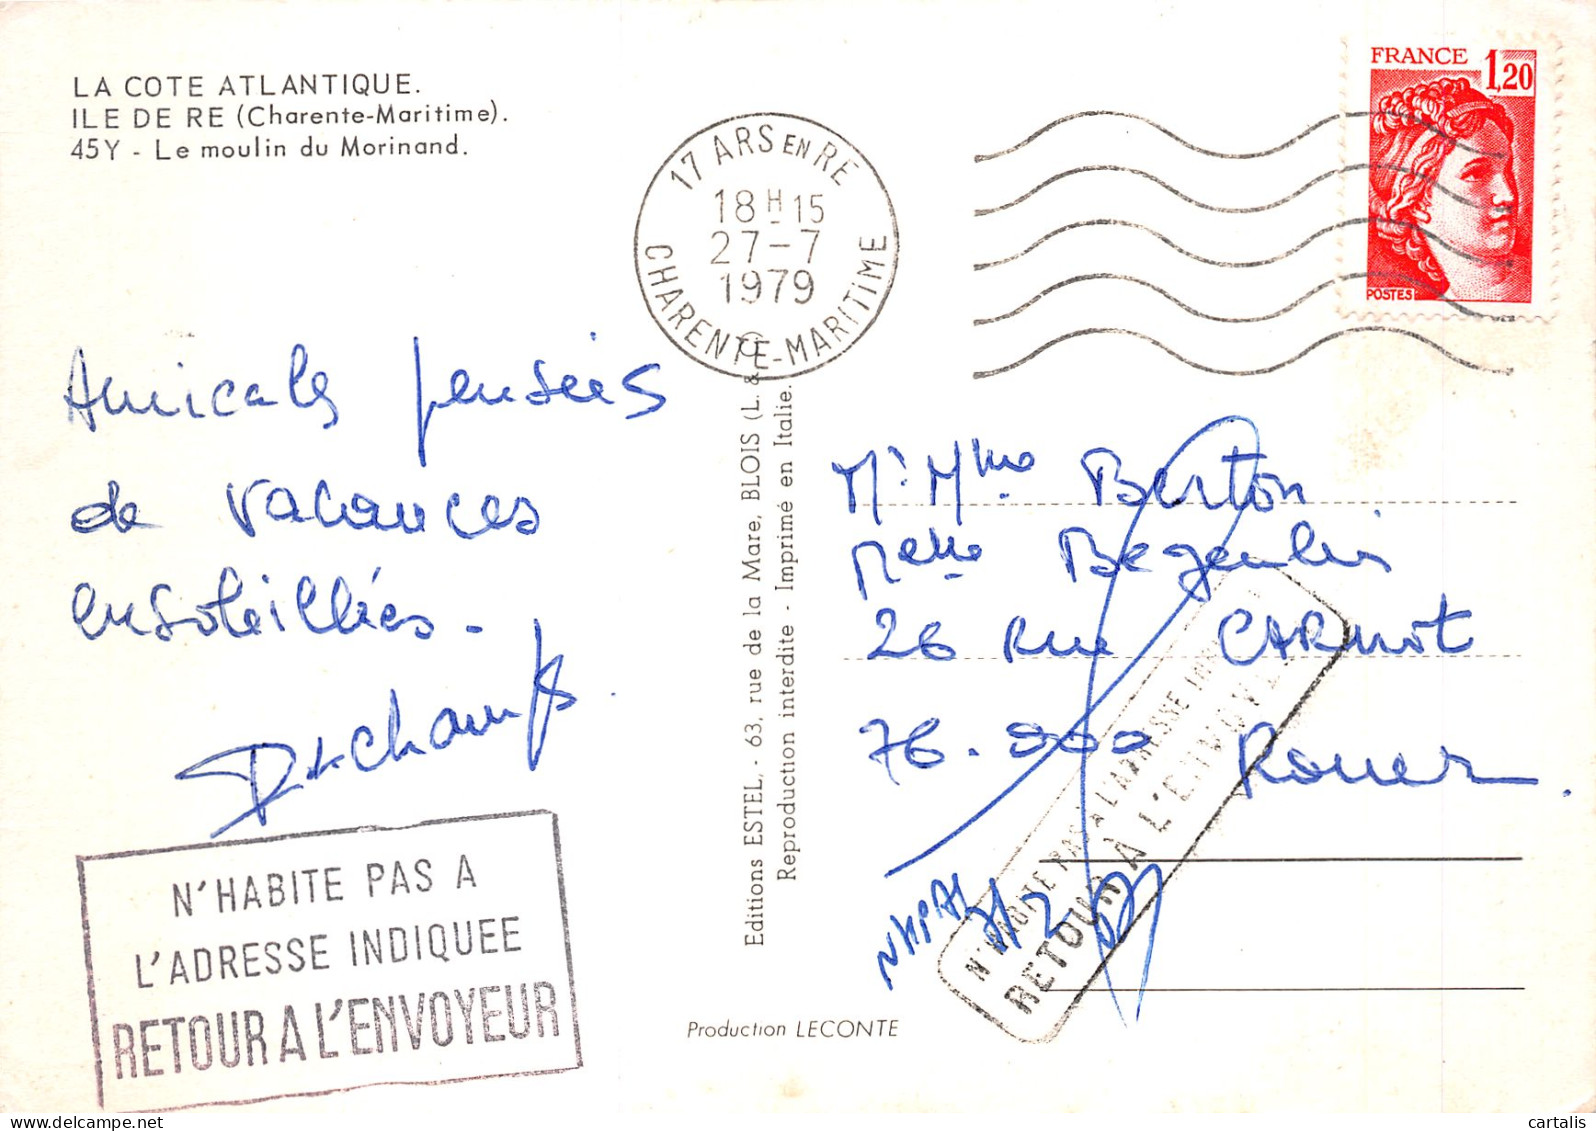 LA COTE ATLANTIQUE.
ILE DE RE (Charente-Maritime).
45Y - Le moulin du Morinand.
17 ARS EN RE
18H15
27-7
1979
CHARENTE-MARITIME
FRANCE 1,20
POSTES
Amicales pensées
de vacances
ensoleillées.
Dechamps.
N'HABITE PAS A
L'ADRESSE INDIQUEE
RETOUR A L'ENVOYEUR
Editions ESTEL, - 63, rue de la Mare, BLOIS (L. &
Reproduction interdite - Imprimé en Italie.
Mr Mme Berton
Melle
26 Rue CARNOT
76.000 Rouen.
NHPAI
N'HABITE PAS A L'ADRESSE
RETOUR À L'ENVOYEUR
Production LECONTE
cartalis